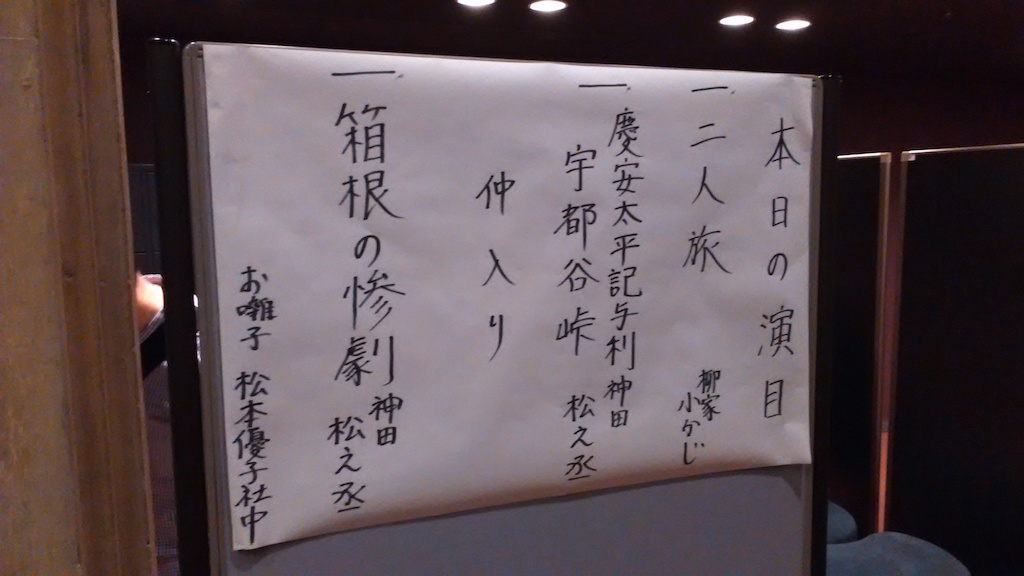 本日の演目
一、二人旅 柳家 小かじ
一、慶安太平記与利
宇都谷峠 神田 松之丞
仲入り
一、箱根の惨劇 神田 松之丞
お囃子 松本優子社中